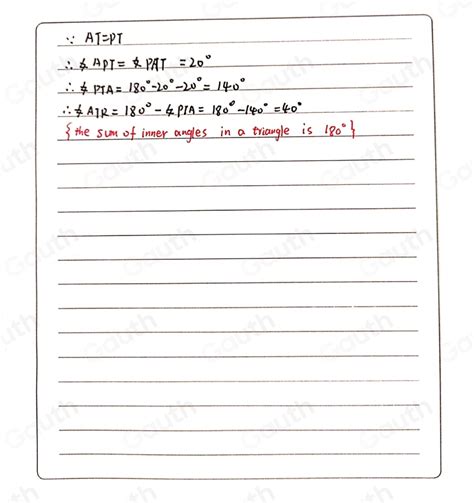 ∵ AT=PT
∴ ∡APT = ∡PAT = 20°
∴ ∡PTA = 180°-20°-20° = 140°
∴ ∡ATR = 180° - ∡PTA = 180°-140° = 40°
{the sum of inner angles in a triangle is 180°}